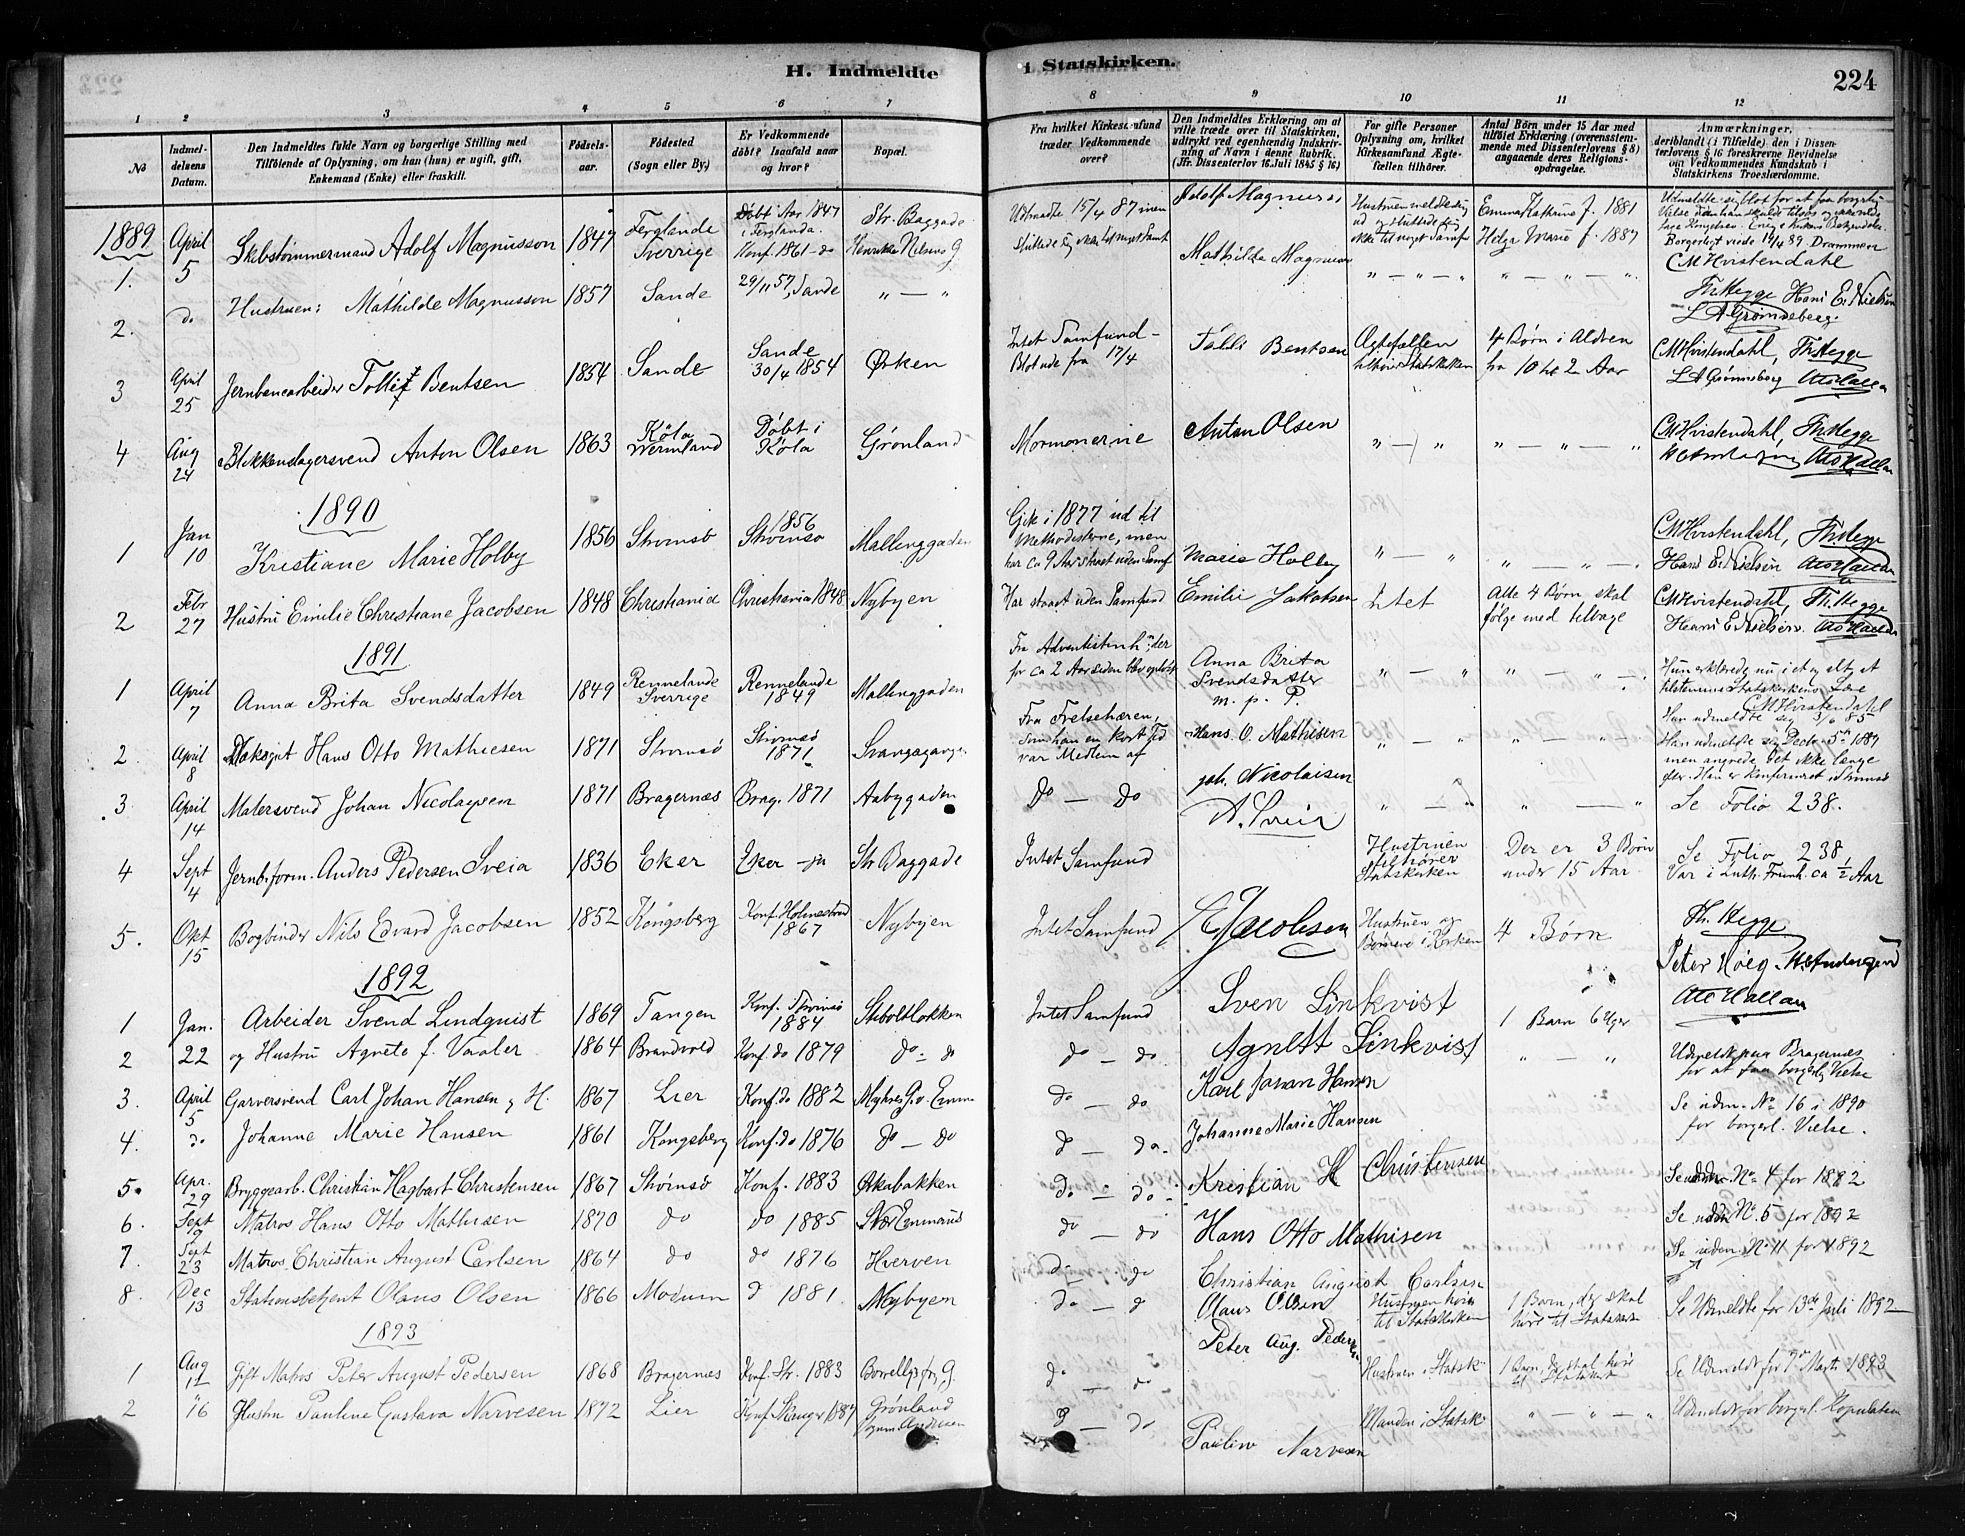 H. Indmeldte
i Statskirken.
224
1 2 3 4 5 6 7 8 9 10 11 12
No
Indmeldelsens Datum.
Den Indmeldtes fulde Navn og borgerlige Stilling med Tilföiende af Oplysning, om han (hun) er ugift, gift, Enkemand (Enke) eller fraskilt.
Födselsaar.
Födested (Sogn eller By).
Er Vedkommende döbt? Isaafald naar og hvor?
Bopæl.
Fra hvilket Kirkesamfund træder Vedkommende over?
Den Indmeldtes Erklæring om at ville træde over til Statskirken, udtrykt ved egenhændig Indskrivning af Navn i denne Rubrik. (Jfr. Dissenterlov 16. Juli 1845 § 16.)
For gifte Personer Oplysning om, hvilket Kirkesamfund Ægtefællen tilhörer.
Antal Börn under 15 Aar med tilföiet Erklæring (overensstemmende med Dissenterlovens § 8) angaaende deres Religionsopdragelse.
Anmærkninger, deriblandt (i Tilfælde) den i Dissenterlovens § 16 foreskrevne Bevidnelse om Vedkommendes Kundskab i Statskirkens Troeslærdomme.
1889
1. April 5 Skibstømmermand Adolf Magnusson 1847 Ferglanda Sverrige Døbt Aar 1847 i Ferglanda. Konf. 1861 - do Str. Baggade Udmeldte 15/4 87 men sluttede sig ikke til noget Samf Adolf Magnuson Hustruen meldte sig ud og sluttede sig ikke til noget Samf Emma Kathrine f. 1881 Helga Marie f. 1887 Borgerligt viede Drammen CMHvistendahl
2. do Hustruen: Mathilde Magnusson 1857 Sande 29/11 57, Sande " — " Mathilde Magnuson " — " — " " — " — " Th. Hegge Hans E. Nielsen L A Grønneberg.
3 April 25 Jernbanearbeider Tollif Bentsen 1854 Sande Sande 30/4 1854 Ørken Intet Samfund - Blot ude fra 17/4 Tolli Bentsen Ægtefællen tilhører Statskirken 4 Børn i Alderen fra 10 til 2 Aar CMHvistendahl, Th. Hegge L A Grønneberg Otto Hallan
4 Aug 24 Blikkenslagersvend Anton Olsen 1863 Køla Wermland Døbt i Køla Grønland Mormonerne Anton Olsen " — " " — " — " CMHvistendahl, Th. Hegge Otto Hallan
1890
1 Jan 10 Kristiane Marie Holby 1856 Strømsø 1856 Strømsø Mallinggaden Gik i 1877 ud til Methodisterne, men har ca 9 Aar staaet uden Samf Marie Holby " — " " — " — " CMHvistendahl, Th. Hegge Hans E. Nielsen Otto Hallan
2 Febr 27 Hustru Emilie Christiane Jacobsen 1848 Christiania Christiania 1848 Nybyen Har staaet uden Samfund Emilie Jakobsen Intet Alle 4 Børn skal følge med tilbage CMHvistendahl, Th. Hegge Hans E. Nielsen. Otto Hallan
1891
1 April 7 Anna Brita Svendsdatter 1849 Rennelanda Sverrige Rennelanda 1849 Mallinggaden Fra Adventistmenh: der for ca 2 Aar siden blev opløst Anna Brita Svendsdatter m. p. P. " — " " — " — " Hun erklærede nu i et og alt at tilstemme Statskirkens Lære CMHvistendahl
2. April 8 Hans Otto Mathiesen 1871 Strømsø Strømsø 1871 Svangsgangen Fra Frelsehæren, som han en kort Tid var Medlem af Hans. O. Mathisen " — " " — " — " Han udmeldte sig men angrede det ikke længe efter. Han er Konfirmeret i Strømsø
3 April 14 Malersvend Johan Nicolaysen 1871 Bragernæs Brag. 1871 Aabygaden Do — Do Joh. Nicolaisen " — " " — " Se Folio 238.
4 Sept 4 Jernb.form. Anders Pedersen Sveia 1836 Eker Eker - ja Str. Baggade Intet Samfund A. Sveia Hustruen tilhører Statskirken Der er 3 Børn under 15 Aar. Se Folio 238 Var i Luth. Frimh. ca 1/2 Aar
5. Okt 15 Bogbinder Nils Edvard Jacobsen 1852 Kongsberg Konf. Holmestrand 1867 Nybyen Intet Samfund E Jacobsen Hustruen og Børnene i Kirken 4 Børn Th. Hegge
1892
Peter Höeg.
Otto Hallan
1 Jan. 22 Arbeider Svend Lindquist 1869 Tangen Konf. Strømsø 1884 Skiboldtlokken Intet Samfund Sven Linkvist 1 Barn 6 Uger
2 og Hustru Agnete f. Vaaler 1864 Brandvold Konf. do 1879 do - do do — do Agnett Linkvist " — " Udmeldt paa Bragernæs for at faa borgerlig Vielse
3. April 5 Garversvend Carl Johan Hansen og H. 1867 Lier Konf. do 1882 do — do Karl Johan Hansen Se udm. No 16 i 1890 for borgerl. Vielse.
4. do Johanne Marie Hansen 1861 Kongsberg Konf. do 1876 do — do do — do. Johanne Marie Hansen
5. Apr. 29 Bryggearb. Christian Hagbart Christensen 1867 Strømsø Konf. 1883 Ørkebakken do — do Kristian H Christensen Se udm. No. 4 for 1882
6. Sept 9 Matros Hans Otto Mathisen 1870 do do 1885 Str. Emmaus do — do Hans Otto Mathisen Se udm No. 5 for 1892
7. Sept 23 Matros. Christian August Carlsen 1864 do do 1876 Hverven do — do Christian August Carlsen Se uden. N. 11 for 1892
8. Dec 13 Stationsbetjent Olaus Olsen 1866 Modum do 1881 Nybyen do — do Olaus Olsen Hustruen hører til Statskirken 1 Barn, der skal høre til Statskirk Se Udmeldte for 13de Juli 1892
1893
1 Aug 11 Gift Matros Peter August Pedersen 1868 Bragernæs Konf. Str. 1883 do — do Peter Aug. Pedersen Hustruen i Statsk. 1 Barn, der skal høre til Statskirk Se Udmeldt for 7de Marts 1893
2 " 16 Hustru Pauline Gustava Narvesen 1872 Lier Konf. Skouger 1887 Grønland do — do Pauline Narvesen Manden i Statsk. " — " — " Udmeldt for borgerl. Kopulation